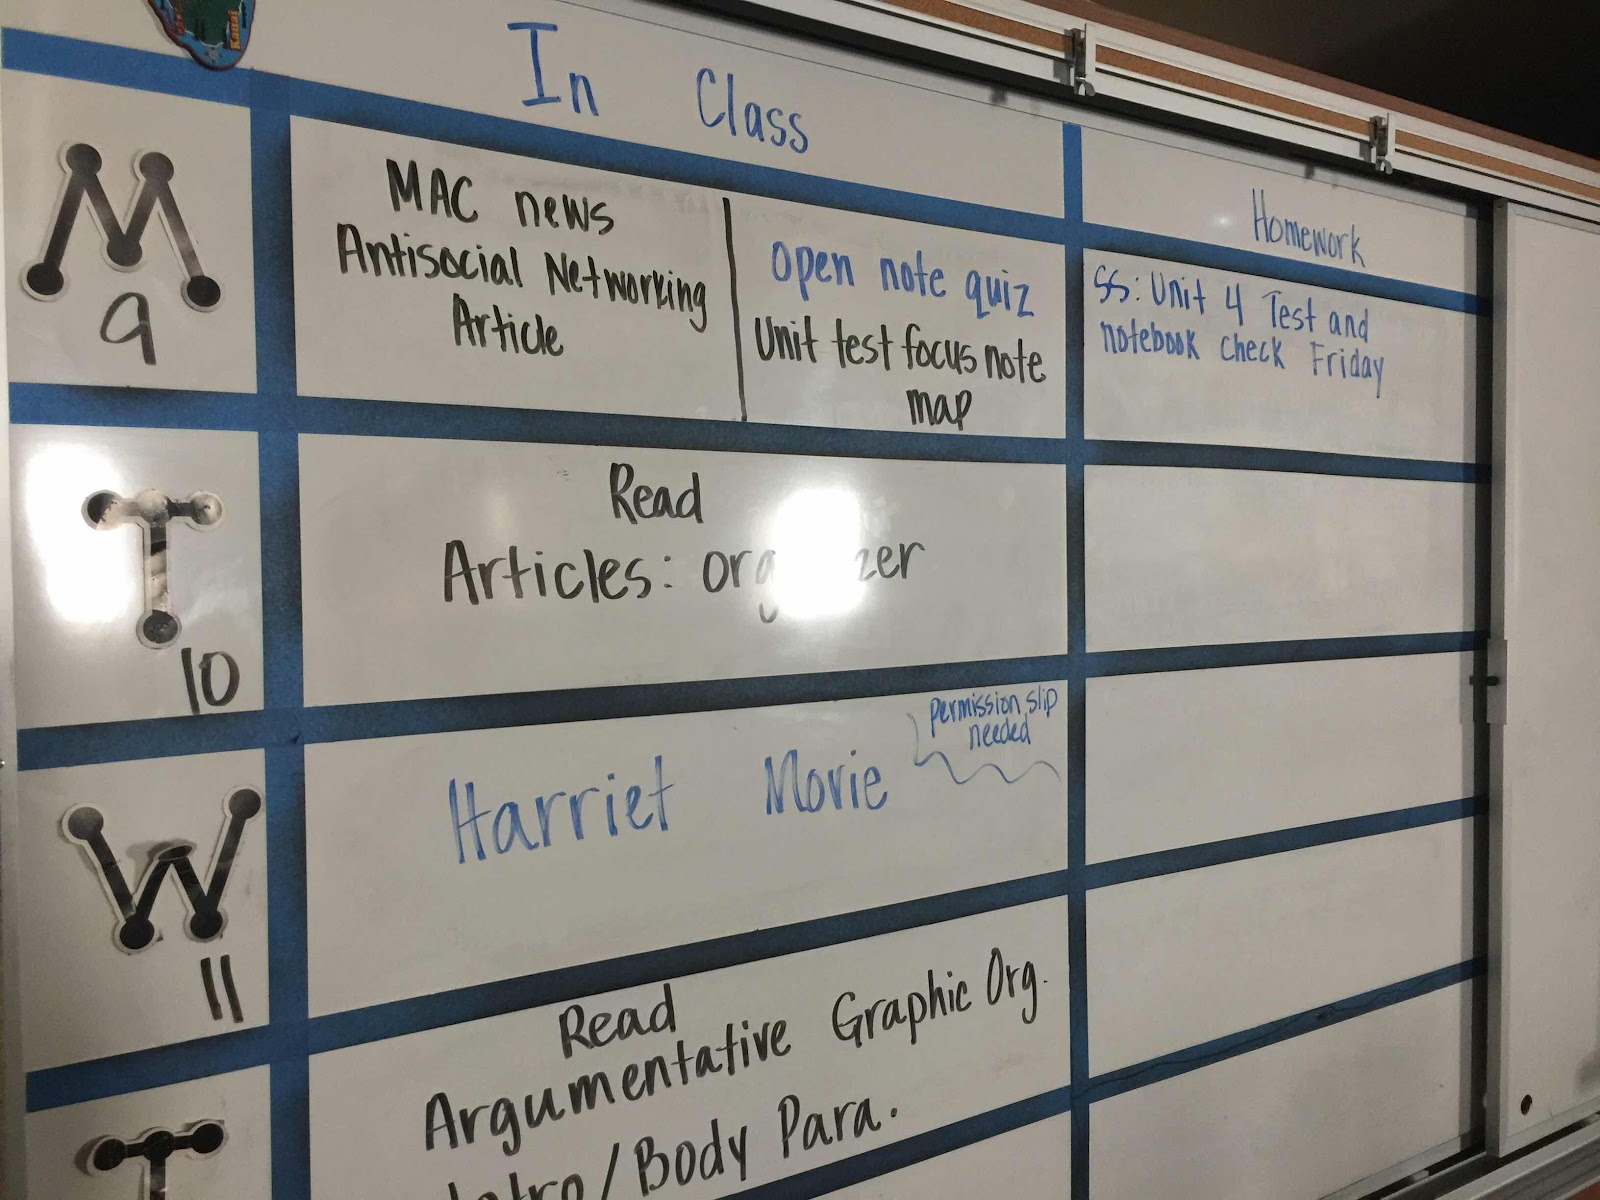 Kauai
In Class
Homework
M
9
MAC news
Antisocial Networking
Article
open note quiz
Unit test focus note
map
SS: Unit 4 Test and
notebook check Friday
T
10
Read
Articles:
W
11
Harriet Movie
permission slip
needed
T
Read
Argumentative Graphic Org.
Intro/Body Para.